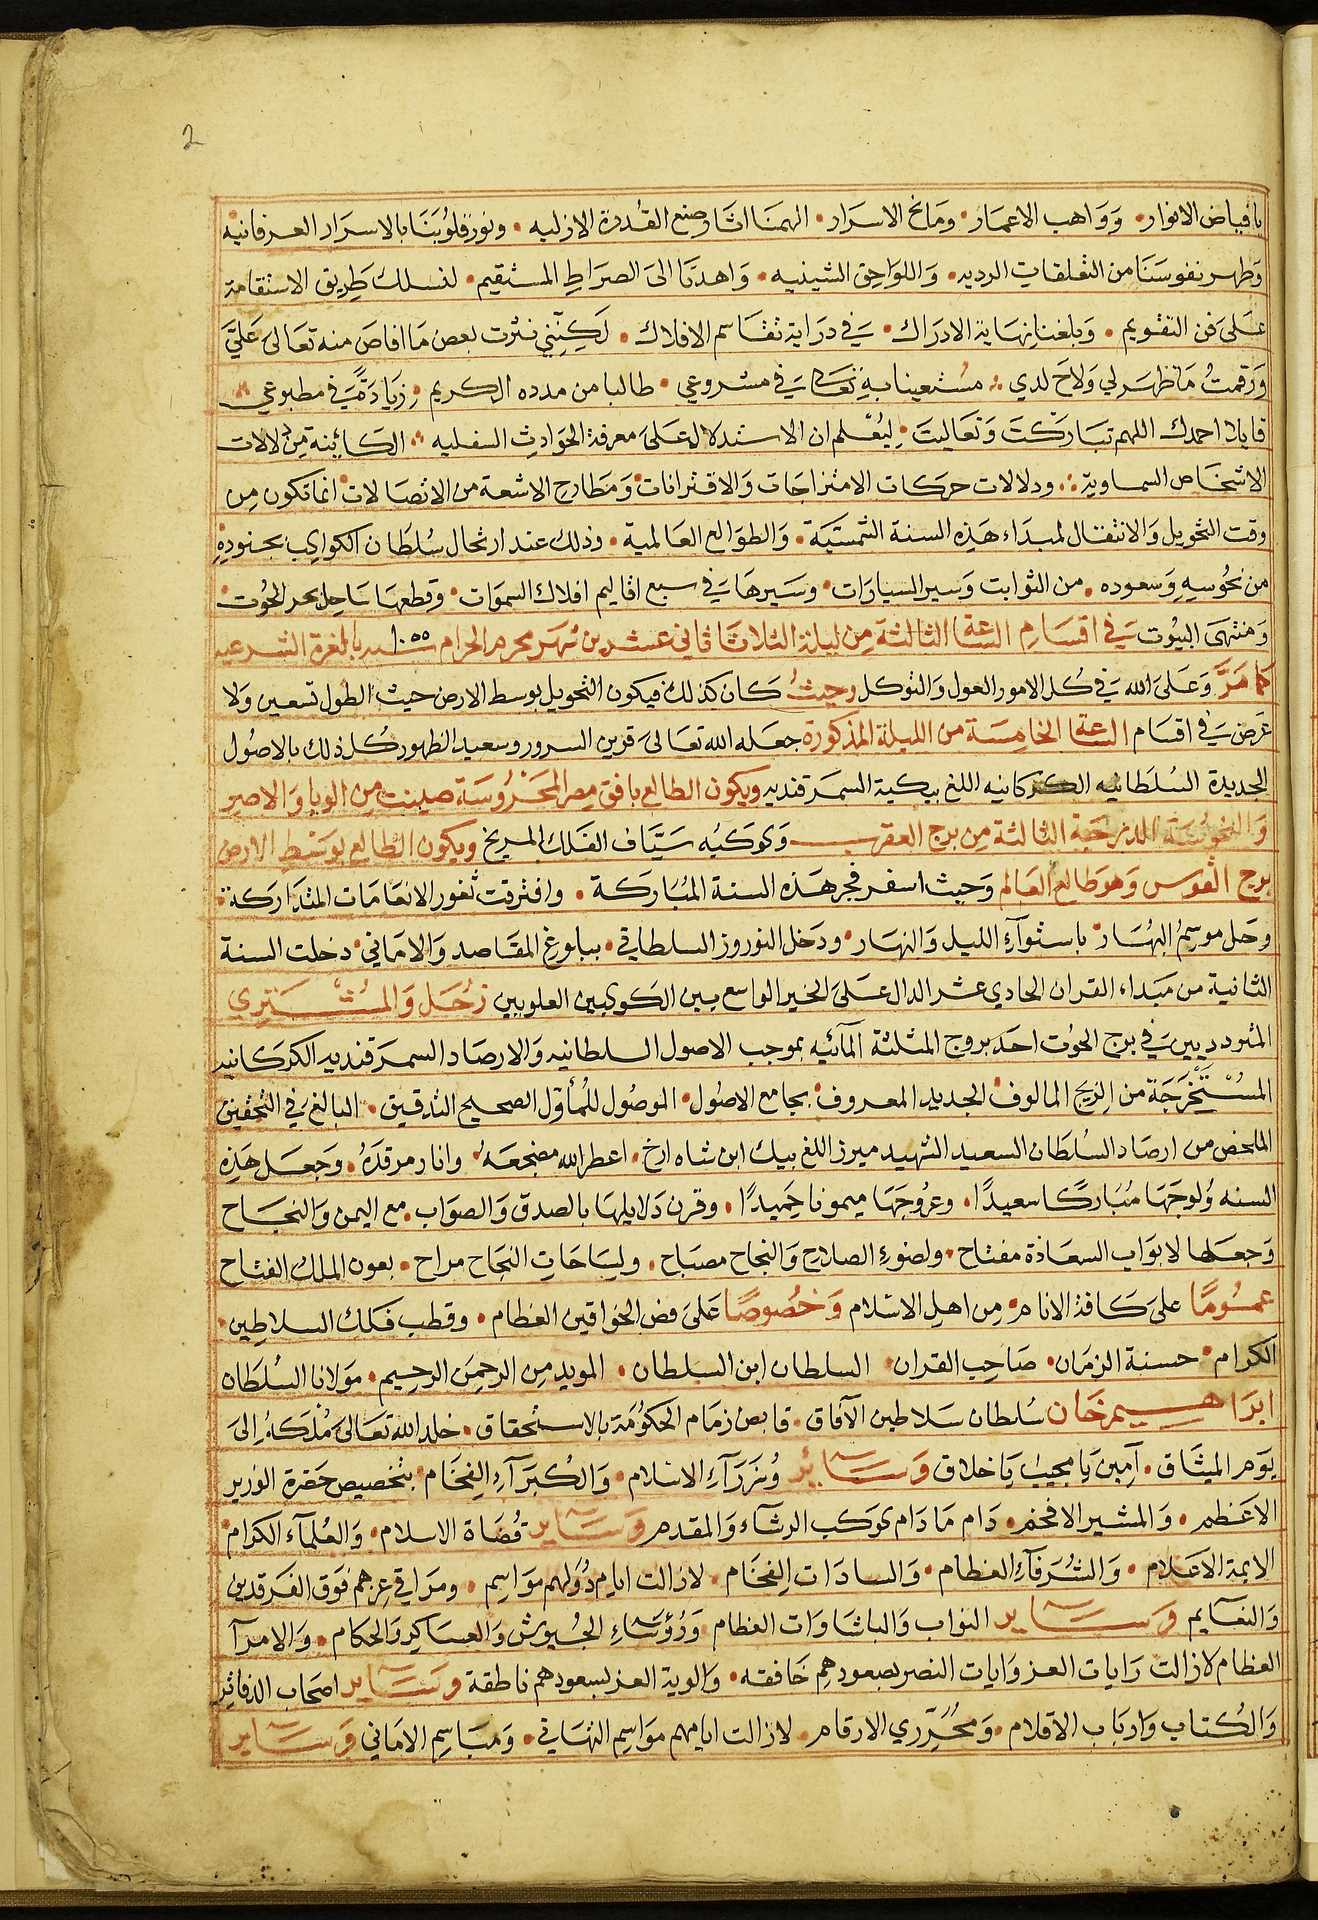 2
يا فياض الانوار • وواهب الاعمار • ومانح الاسرار • الهمنا اثار صنع القدرة الازليه • ونور قلوبنا بالاسرار العرفانيه
وطهر نفوسنا من التعلقات الرديه • واللواحق الشينيه • واهدنا الى الصراط المستقيم • لنسلك طريق الاستقامة
على فن التقويم • وبلغنا نهاية الادراك • في دراية تقاسم الافلاك • لكنني نثرت بعض ما افاض منه تعالى علي
ورقمت ما ظهر لي ولاح لدي • مستعينا به تعالى في مشروعي • طالبا من مدده الكريم • زيادة في مطبوعي
قايلا احمدك اللهم تباركت وتعاليت • ليعلم ان الاستدلال على معرفة الحوادث السفليه • الكائنة من دلالات
الاشخاص السماوية • ودلالات حركات الامتزاجات والاقترانات • ومطارح الاشعة من الاتصالات • انما تكون من
وقت التحويل والانتقال لمبداء هذه السنة الشمسية • والطوالع العالمية • وذلك عند ارتحال سلطان الكواكب بجنوده
من نحوسه وسعوده • من الثوابت وسير السيارات • وسيرها في سبع اقاليم افلاك السموات • وقطعها ساحل بحر الحوت
ومنتهى البيوت في اقسام الساعة الثالثة من ليلة الثلاثا ثاني عشرين شهر محرم الحرام سنة ١٠٥٥ بالغرة الشرعيه
كما مر وعلى الله في كل الامور العول والتوكل وحيث كان كذلك فيكون التحويل بوسط الارض حيث الطول تسعين ولا
عرض في اقسام الساعة الخامسة من الليلة المذكورة جعله الله تعالى قرين السرور وسعيد الظهور كل ذلك بالاصول
الجديدة السلطانيه الكركانيه اللغ بيكية السمرقنديه ويكون الطالع بافق مصر المحروسة صينت من الوبا والاصر
والنحوسة الدرجة الثالثة من برج العقرب وكوكبه سياف الفلك المريخ ويكون الطالع بوسط الارض
برج القوس وهو طالع العالم وحيث اسفر فجر هذه السنة المباركة • وافترقت ثغور الانعامات المتداركة
وحل موسم البهار • باستوآء الليل والنهار • ودخل النوروز السلطاني • ببلوغ المقاصد والاماني • دخلت السنة
الثانية من مبداء القران الحادي عشر الدال على الخير الواسع بين الكوكبين العلويين زحل والمشتري
المترددين في برج الحوت احد بروج المثلثة المآئيه بموجب الاصول السلطانيه والارصاد السمرقنديه الكركانيه
المستخرجة من الزيج المالوف الجديد المعروف • بجامع الاصول • الموصول للمأول الصحيح التدقيق • البالغ في التحقيق
الملخص من ارصاد السلطان السعيد الشهيد ميرزا اللغ بيك ابن شاه ارخ • اعطر الله مضجعه • وانار مرقده • وجعل هذه
السنه ولوجها مباركا سعيدا • وعروجها ميمونا حميدا • وقرن دلايلها بالصدق والصواب • مع اليمن والنجاح
وجعلها لابواب السعادة مفتاح • ولضوء الصلاح والنجاح مصباح • ولساحات النجاح مراح • بعون الملك الفتاح
عموما على كافة الانام • من اهل الاسلام وخصوصا على فض الخواقين العظام • وقطب فلك السلاطين •
الكرام • حسنة الزمان • صاحب القران • السلطان ابن السلطان • المويد من الرحمن الرحيم • مولانا السلطان
ابراهيم خان سلطان سلاطين الآفاق • قابض زمام الحكومة بالاستحقاق • خلد الله تعالى ملكه الى
يوم الميثاق • آمين يا مجيب يا خلاق وساير وزرآء الاسلام • والكبرآء الفخام • بتخصيص حضرة الوزير
الاعظم • والمشير الافخم • دام ما دام كوكب الرشآء والمقدم وساير قضاة الاسلام • والعلمآء الكرام
الايمة الاعلام • والشرفآء العظام • والسادات الفخام • لا زالت ايام دولهم مواسم • ومراقي عزهم فوق الفرقدين
والنعايم وساير النواب والباشاوات العظام ورؤساء الجيوش والعساكر والحكام • والامرآ
العظام لا زالت رايات العز وايات النصر بصعودهم خافقه • والوية العز بسعودهم ناطقة وساير اصحاب الدفاتير
والكتاب وارباب الاقلام • ومحرري الارقام • لا زالت ايامهم مواسم التهاني • ومباسم الاماني وساير